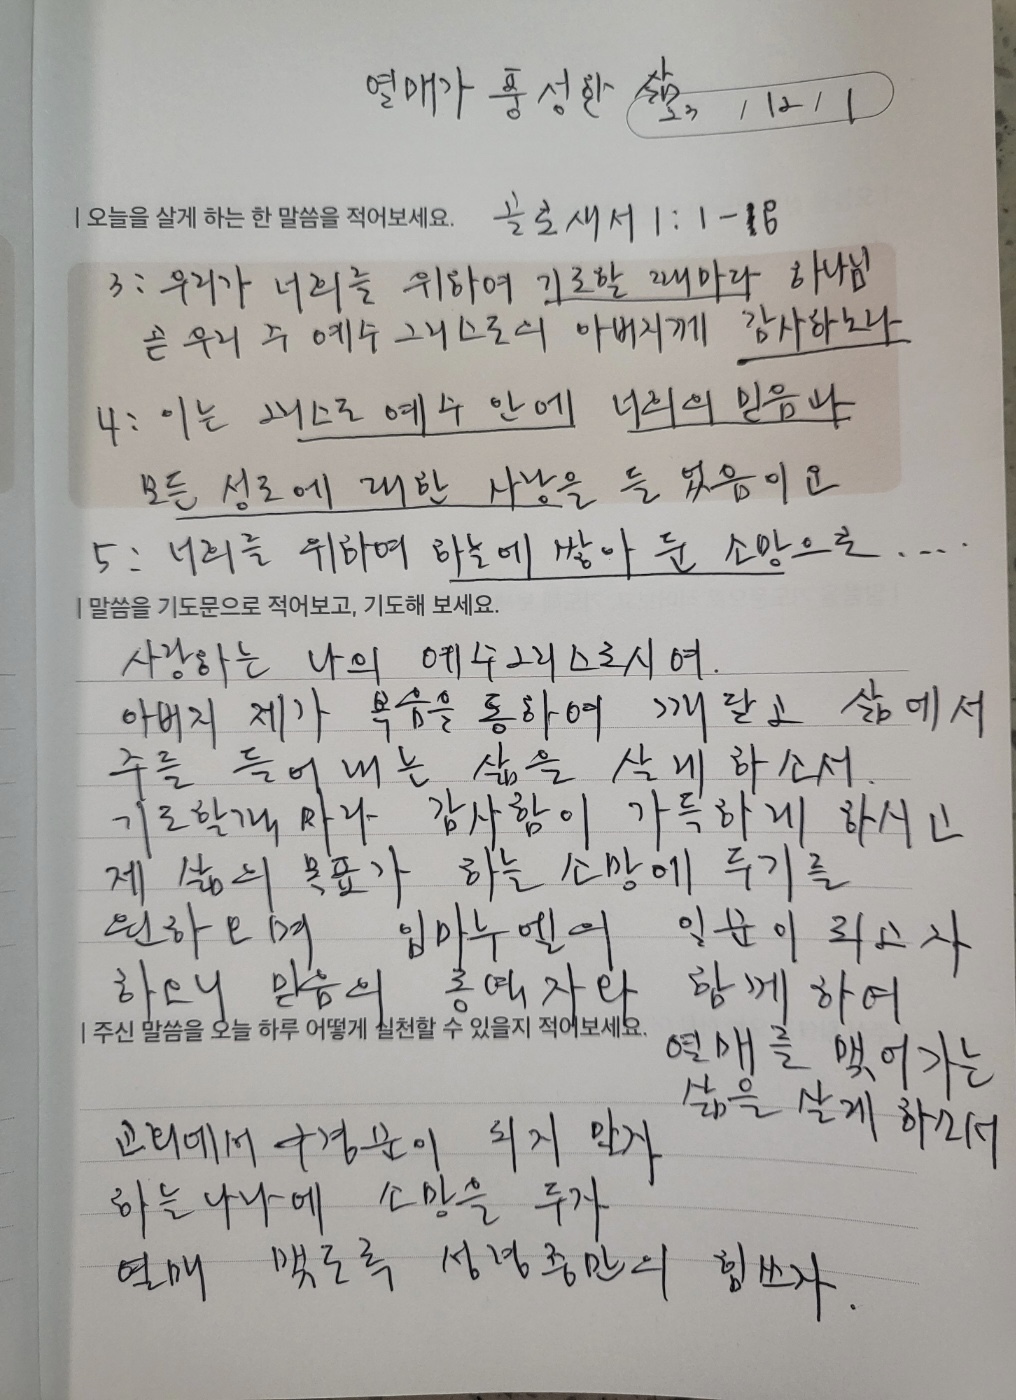 열매가 풍성한 삶
23 / 12 / 1
| 오늘을 살게 하는 한 말씀을 적어보세요. 골로새서 1 : 1 -18
3 : 우리가 너희를 위하여 기도할 때마다 하나님
곧 우리 주 예수 그리스도의 아버지께 감사하노라
4 : 이는 그리스도 예수 안에 너희의 믿음과
모든 성도에 대한 사랑을 들 었음이요
5 : 너희를 위하여 하늘에 쌓아 둔 소망으로 . . . .
| 말씀을 기도문으로 적어보고, 기도해 보세요.
사랑하는 나의 예수그리스도시여.
아버지 제가 복음을 통하여 깨닫고 삶에서
주를 들어내는 삶을 살게 하소서.
기도할때 마다 감사함이 가득하게 하시고
제 삶의 목표가 하늘 소망에 두기를
원하오며 임마누엘에 일꾼이 되고자
하오니 믿음의 동역자와 함께하여
열매를 맺어가는
삶을 살게 하소서
| 주신 말씀을 오늘 하루 어떻게 실천할 수 있을지 적어보세요.
구경꾼이 되지 말자
하늘나라에 소망을 두자
열매 맺도록 성령충만의 힘쓰자.